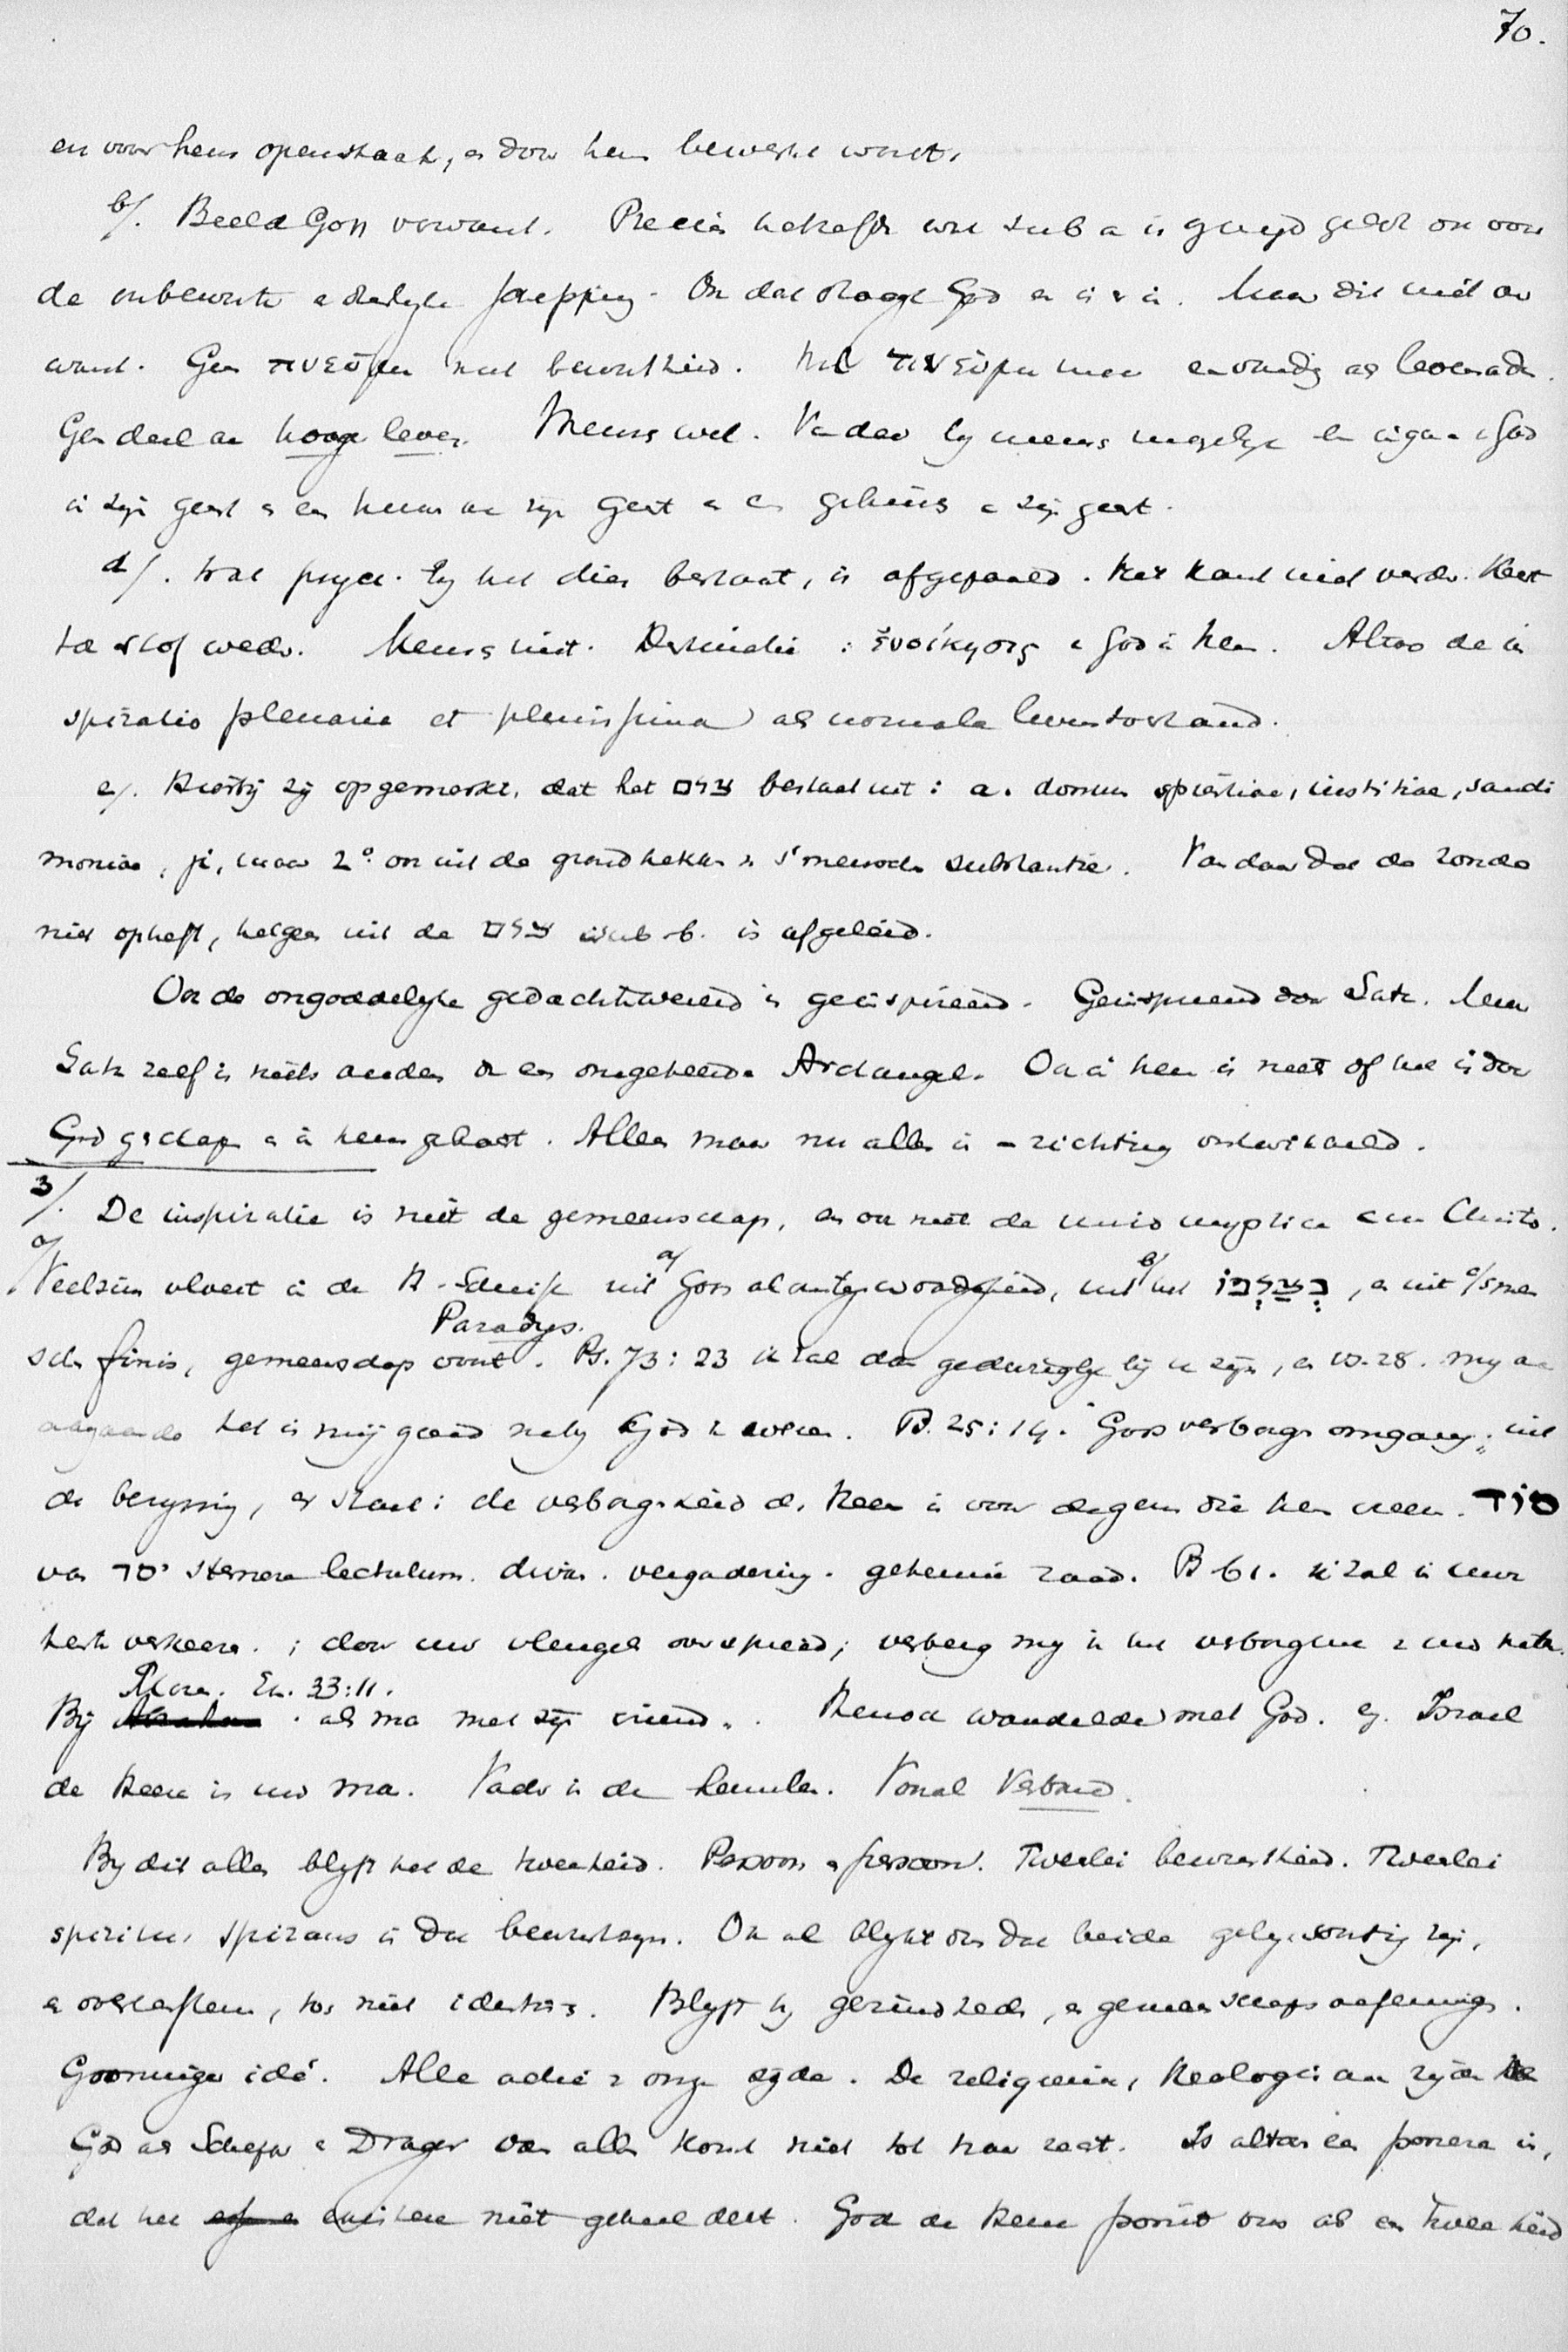 70.
en voor hem openstaat, en door hem bewerkt wordt.
b/. Beeld Gods verwant. Precies hetzelfde wat sub a is gezegd geldt ook voor
de onbewuste en dierlyke schepping. Ook dat draagt God en is in. Maar dit niet
want. Geen πνεῦμα met bewustheid. Het πνεῦμα maar eenvoudig als levensadem.
Geen deel aan hooger leven. Mensch wel. Vandaar by mensch mogelyk een ingaan God
in zyn geest en een van zyn geest en een gehuis in zyn geest.
d/. Wat psych. by het dier bestaat, is afgepaald. Het kan niet verder. Keert
tot stof weder. Mensch niet. Destinatie : ἐνοίκησις God in hem. Altoos de in
spiratio plenaria et plenissima als normale levenstoestand.
e/. Hierbij zij opgemerkt, dat het צלם bestaat uit : a. donum sapientiae, iustitiae, sancti
moniae, ja, maar 2º ook uit de grondtrekken 's menschen substantie. Vandaar dat de zonde
niet opheft, hetgeen uit de צלם sub b. is afgeleid.
Ook de ongoddelyke gedachtewereld is geïnspireerd. Geïnspireerd door Satan. Maar
Satan zelf is niets anders dan een omgekeerde Archangel. Ook in hem is niets of het is door
God geschapen en in hem gelegd. Alles maar nu alles in – richting ontwikkeld.
3/. De inspiratie is niet de gemeenschap, en ook niet de unio mystica cum Christo.
a/ Veelzins vloeit in de H. Schrift uit a/ Gods alomtegenwoordigheid, uit b/ het בְּצַלְמוֹ, en uit c/ 's men
schen finis, gemeenschap voort. Paradys. Ps. 73 : 23 ik zal dan geduriglyk by u zyn, en vs. 28. my aan
aangaande het is mij goed naby God te wezen. Ps. 25 : 14. "Gods verborgen omgang" uit
de berijming, er staat : de verborgenheid des Heeren is voor degenen die hem vreezen. סוֹד
van יסד sternere lectulum. divan. vergadering. geheime raad. Ps 61. ik zal in uwe
hutte verkeeren. ; door uw vleugels overspreid ; verberg my in het verborgene van uw hutte.
Bij Mozes. Ex. 33:11. als man met zyn vriend". Henoch wandelde met God. Israel
de Heere is uw man. Vader in de hemelen. Vooral Verbond.
By dit alles blyft het de tweeheid. Persoon en persoon. Tweeërlei bewustheid. Tweeërlei
spiritus spirans in die bewustzyn. Ook al blykt ons dat beide gelyksoortig zyn,
en overeenstem, toch niet identisch. Blyft by gezindheden, en gemeenschapsoefening.
Groninger idé. Alle actie van onze zyde. De religieuze, theologische aan zyde
God als Schepper en Drager van alles komt niet tot haar recht. Is altoos een ponere in,
dat het niet geheel dekt. God de Heere ponit ons als een tweeheid